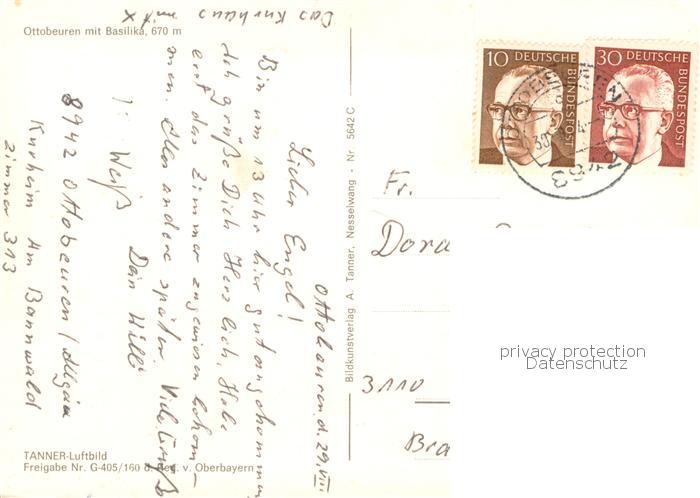 Ottobeuren mit Basilika, 670 m
Das Kurhaus mit x
Ottobeuren d. 29. VIII
Lieber Engel!
Bin um 13 Uhr hier gut angekommen
ich grüße Dich Herzlich, Habe
erst das Zimmer angewiesen bekom-
men. Alles andere später. Viele Grüße
Dein Willi
I. Weiß
8942 Ottobeuren / Allgäu
Kurheim Am Bannwald
Zimmer 313
TANNER-Luftbild
Freigabe Nr. G-405/160 d. Reg. v. Oberbayern
Bildkunstverlag A. Tanner, Nesselwang - Nr. 5642 C
10 DEUTSCHE BUNDESPOST
30 DEUTSCHE BUNDESPOST
Fr.
Dora
3110
Bra
privacy protection
Datenschutz